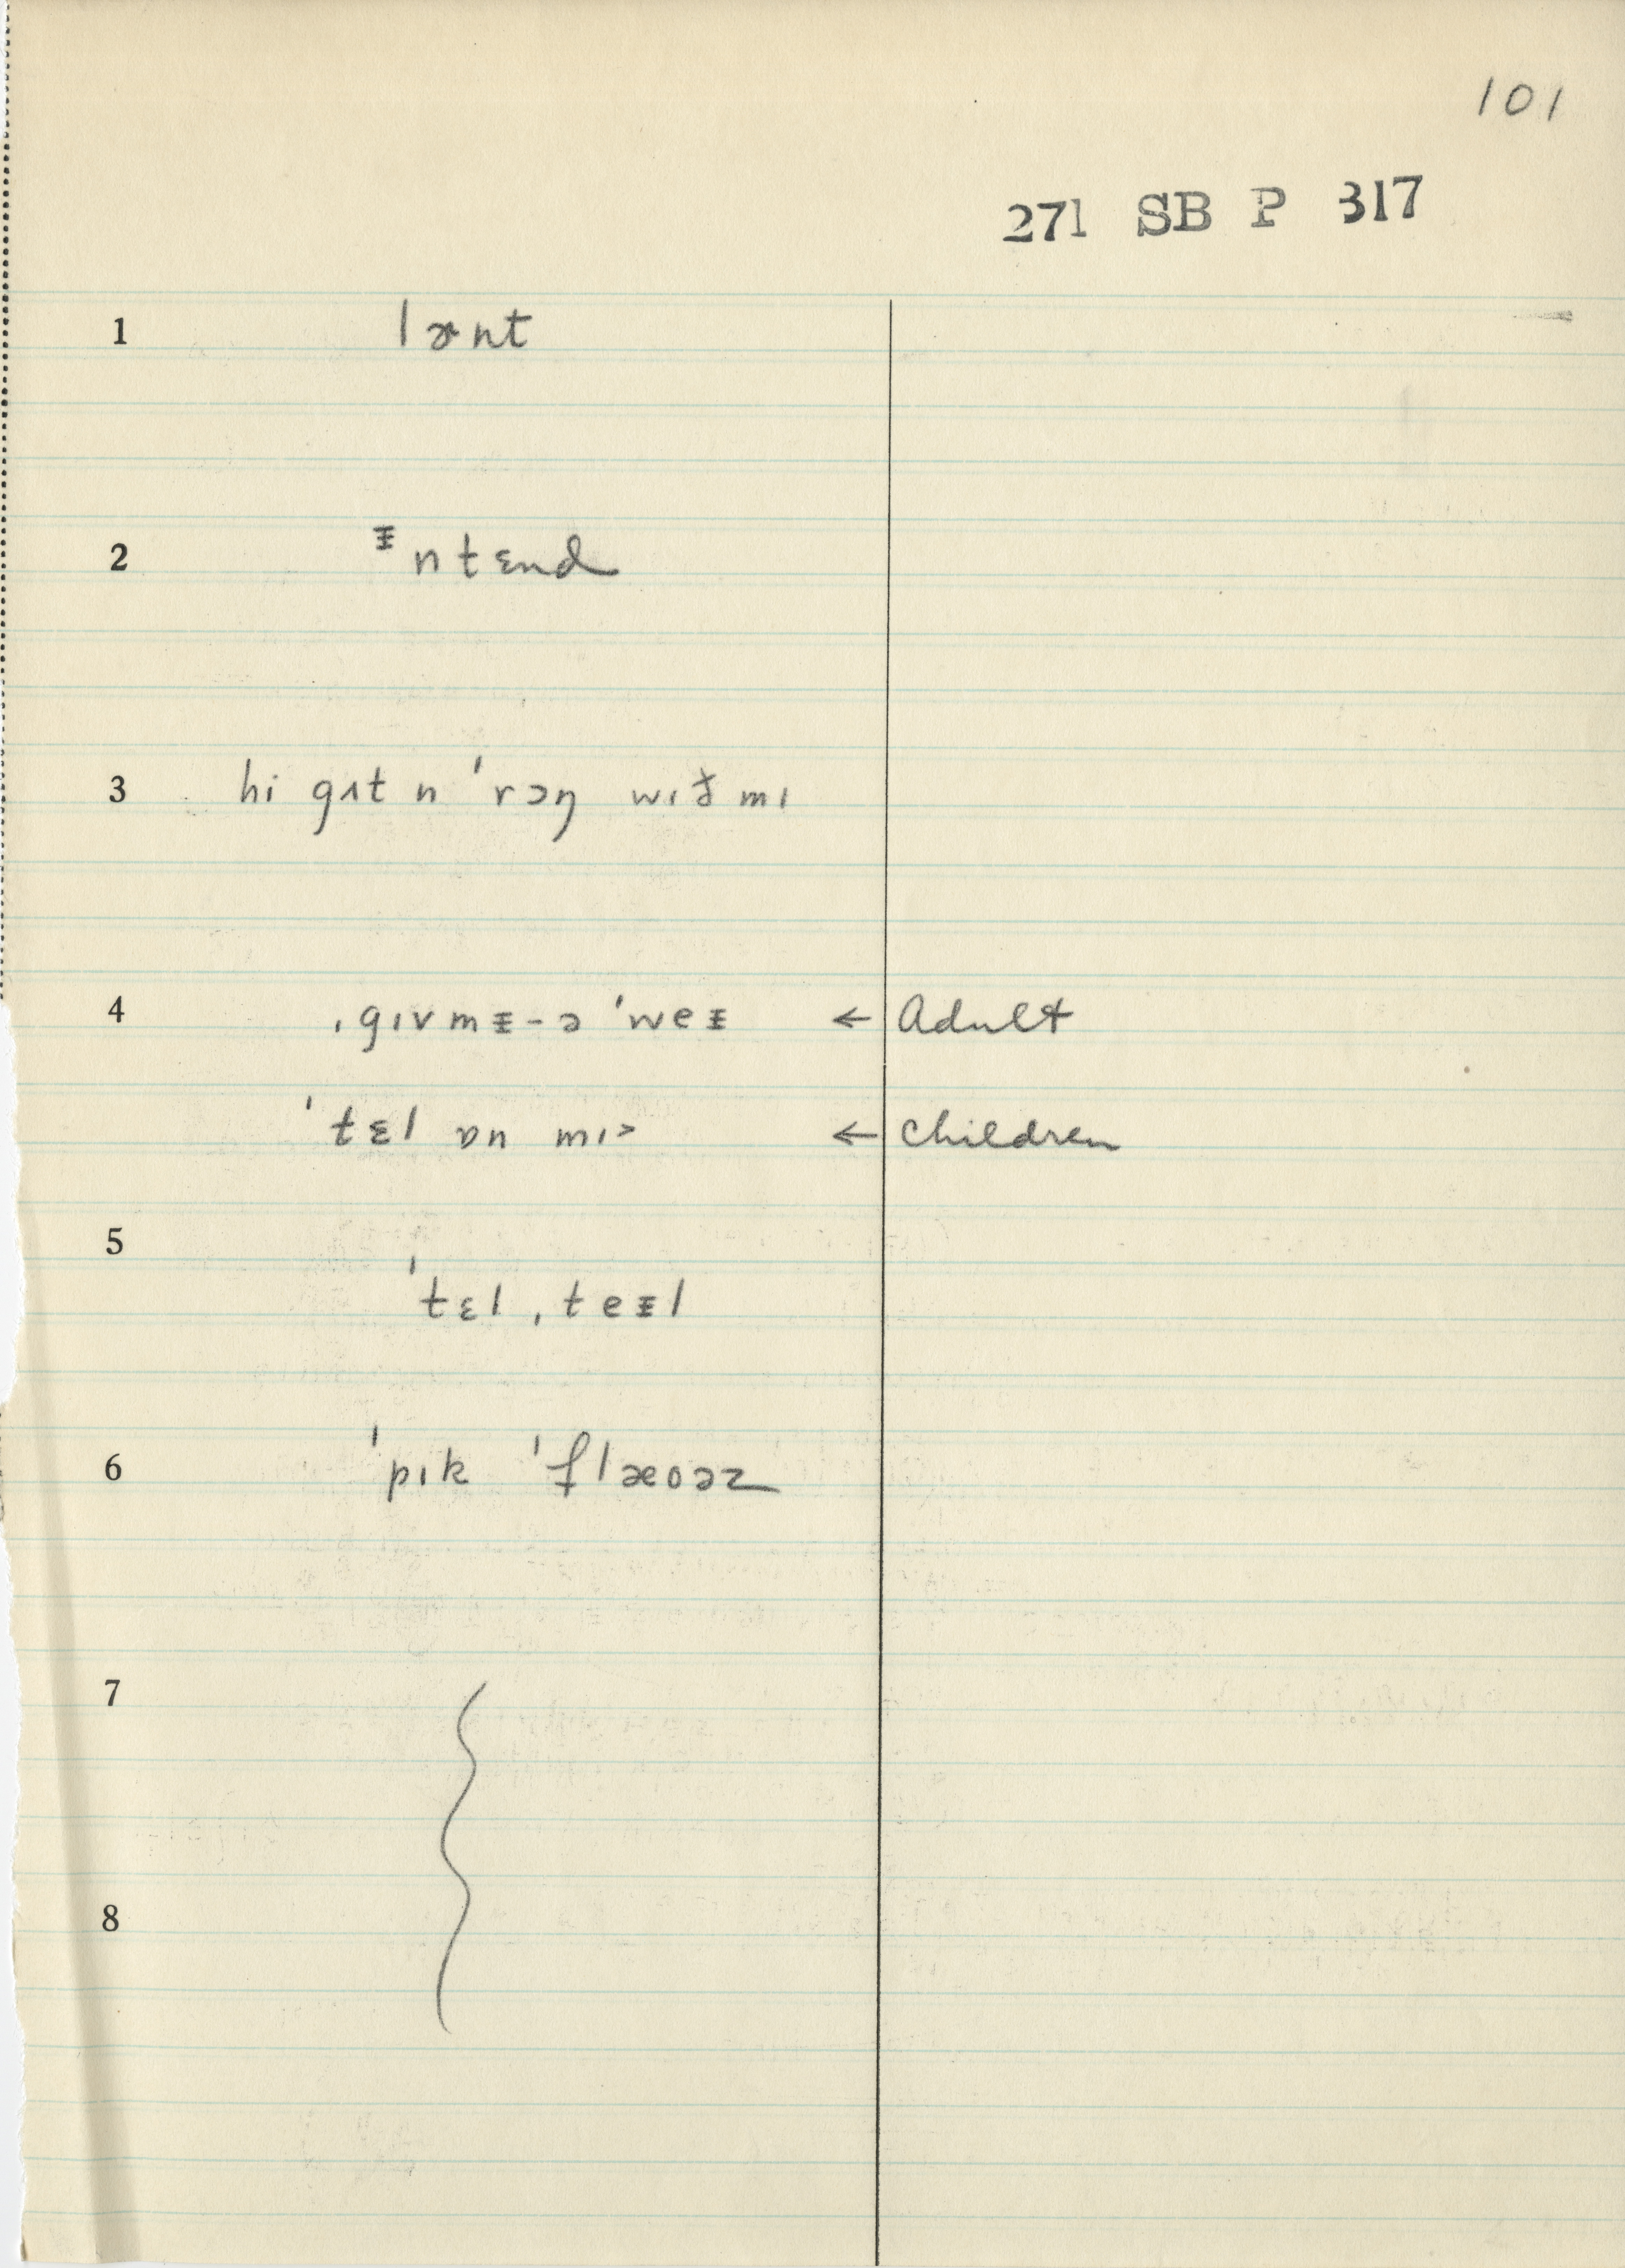 101
271 SB P 317
1 lɚnt
2 ᵻntɛnd
3 hi gɪt n ˈrɔŋ wɪð mɪ
4 ˌgɪvmᵻ-ə ˈweᵻ ← Adult
ˈtɛl ɒn mɪ˃ ← children
5
ˈtɛl ˌteᵻl
6 ˈpɪk ˈflæoəz
7
8